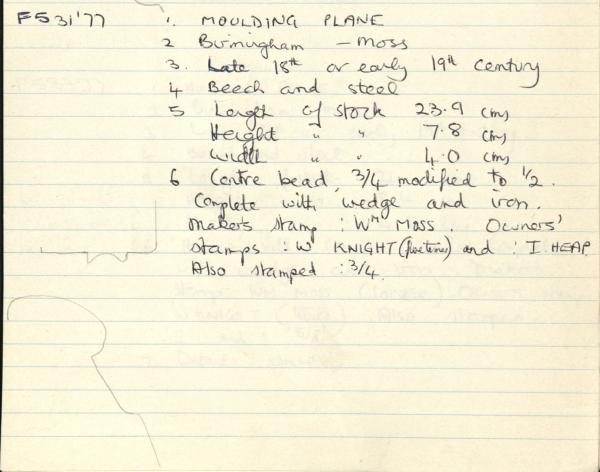 F531'77 1. MOULDING PLANE
2 Birmingham - Moss
3. Late 18th or early 19th century
4 Beech and steel
5 Length of stock 23.9 cms
Height " " 7.8 cms
Width " " 4.0 cms
6 Centre bead, 3/4 modified to 1/2.
Complete with wedge and iron.
Maker's stamp : Wm MOSS. Owners'
stamps : W KNIGHT (five times) and : I. HEAP.
Also stamped : 3/4.